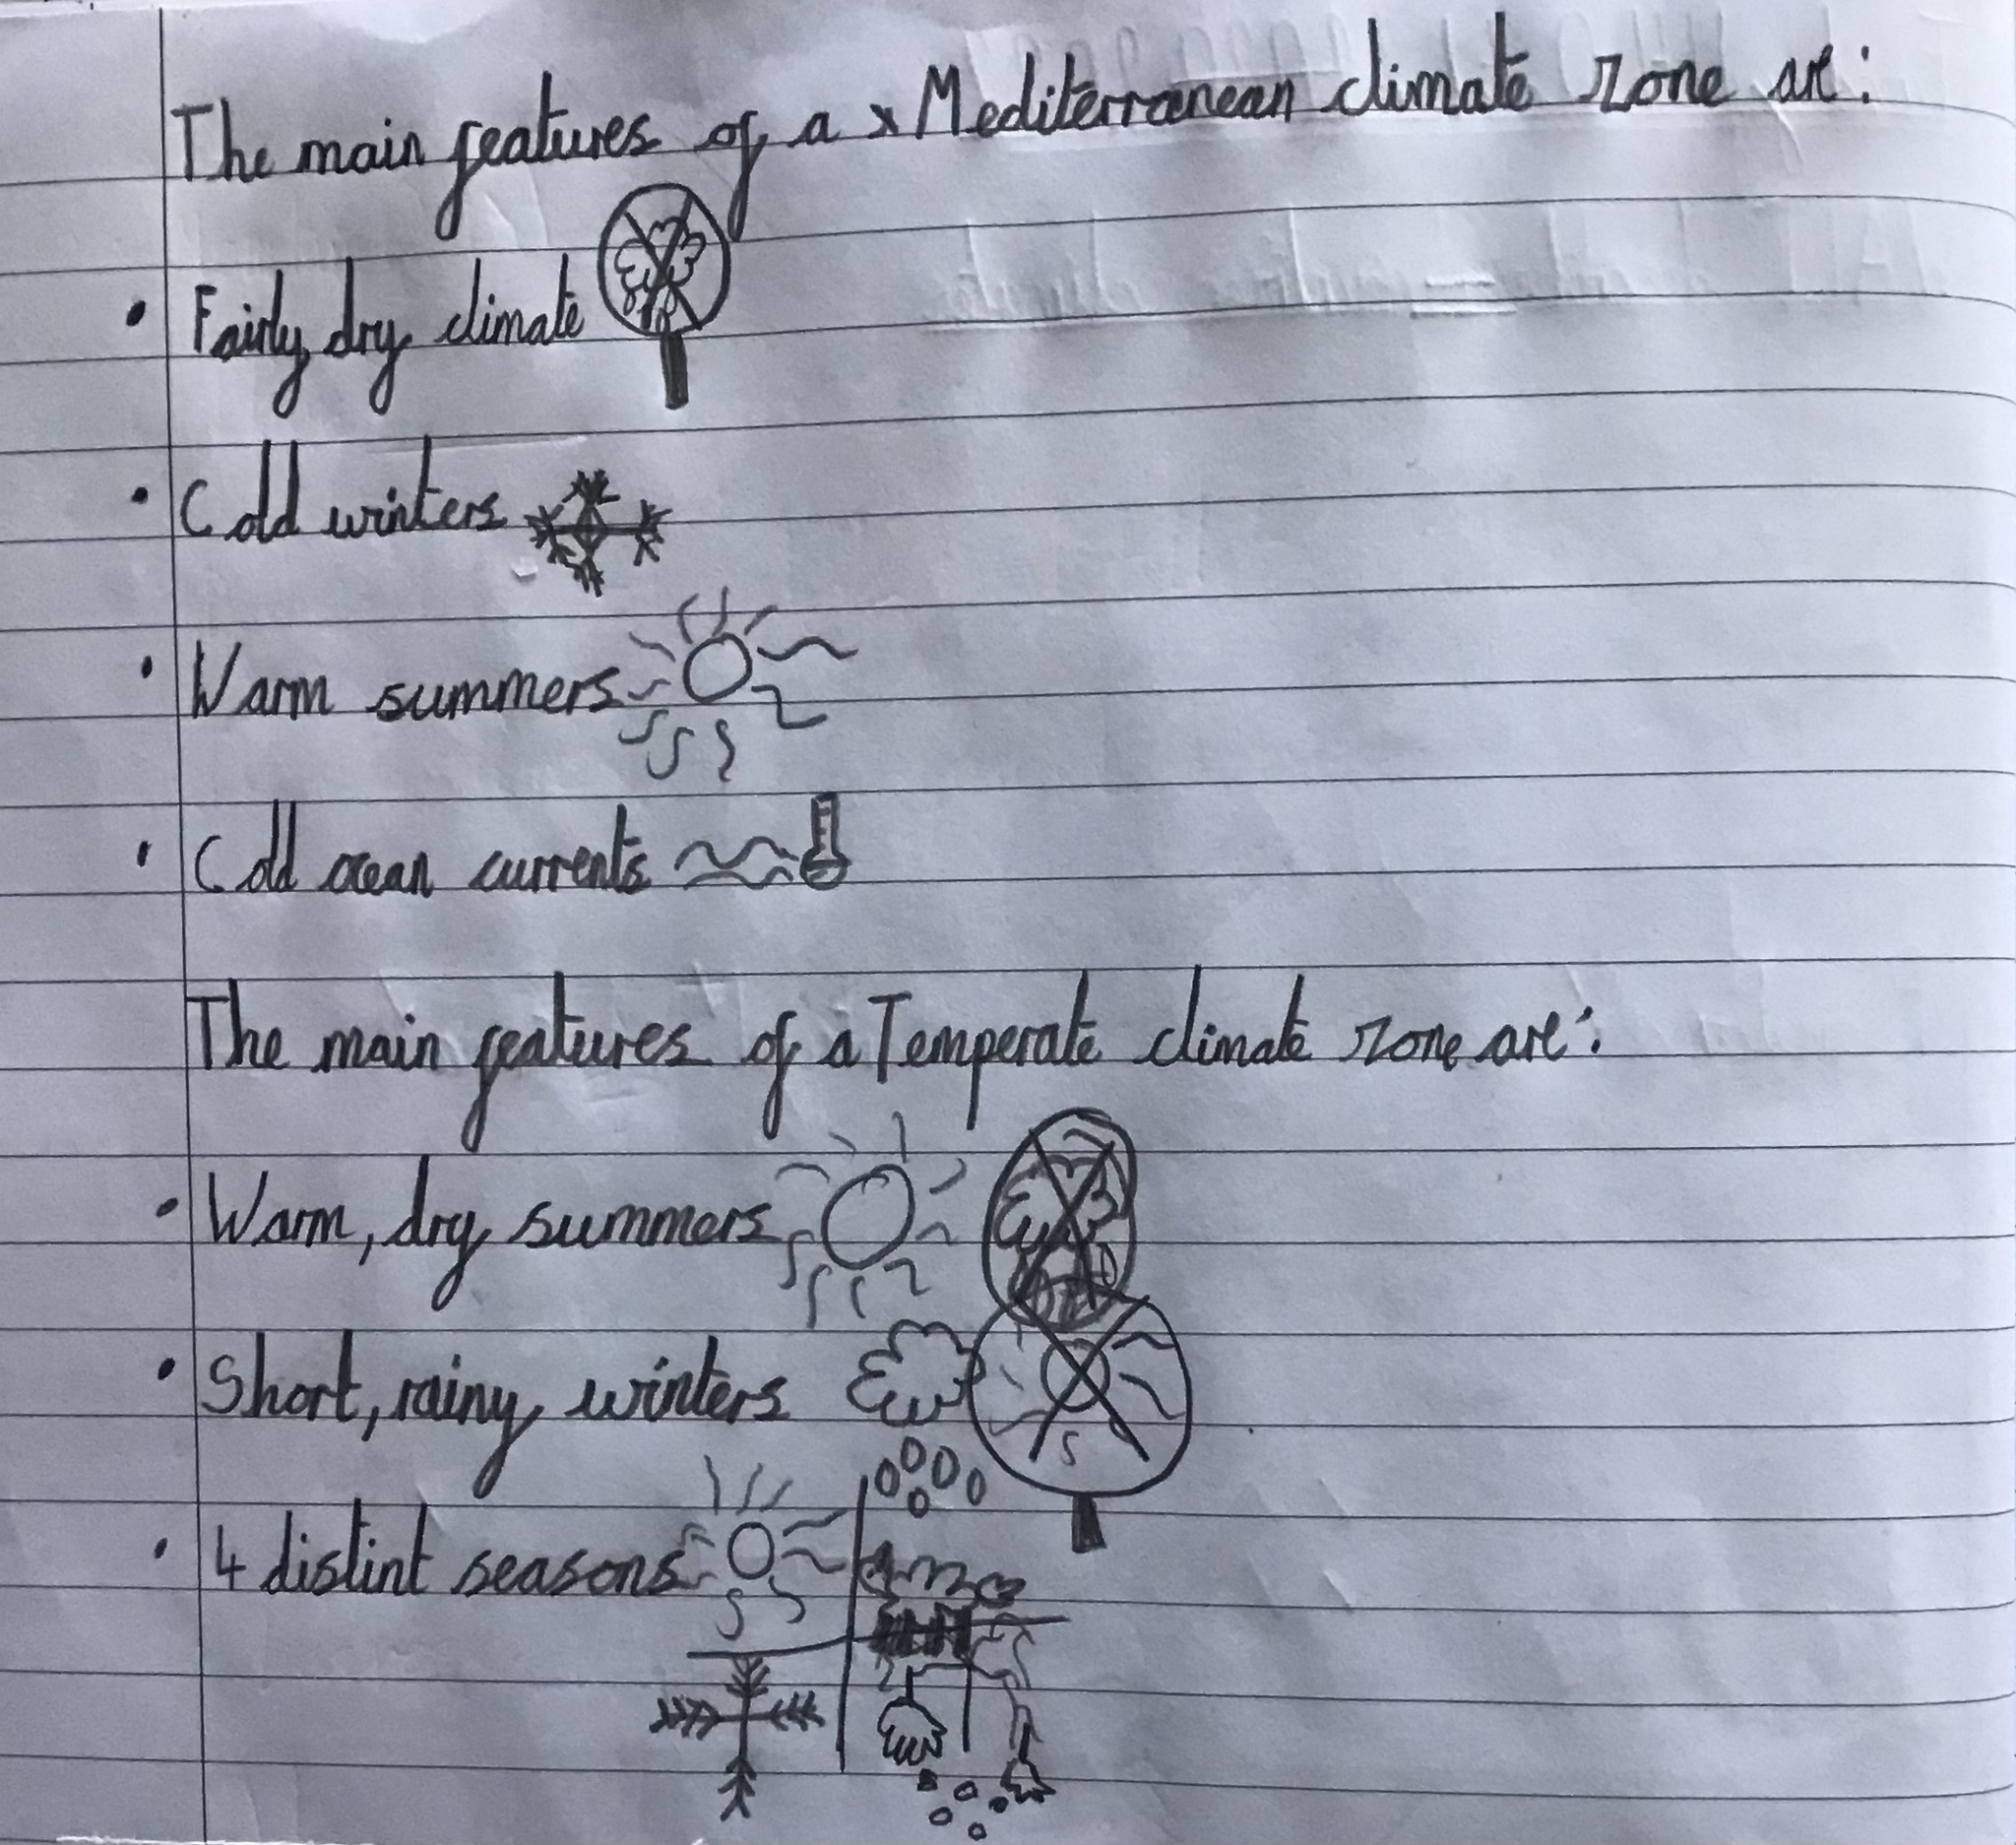 The main features of a x Mediterranean climate zone are:
• Fairly dry climate
• Cold winters
• Warm summers
• Cold ocean currents
The main features of a Temperate climate zone are:
• Warm, dry summers
• Short, rainy, winters
• 4 distint seasons